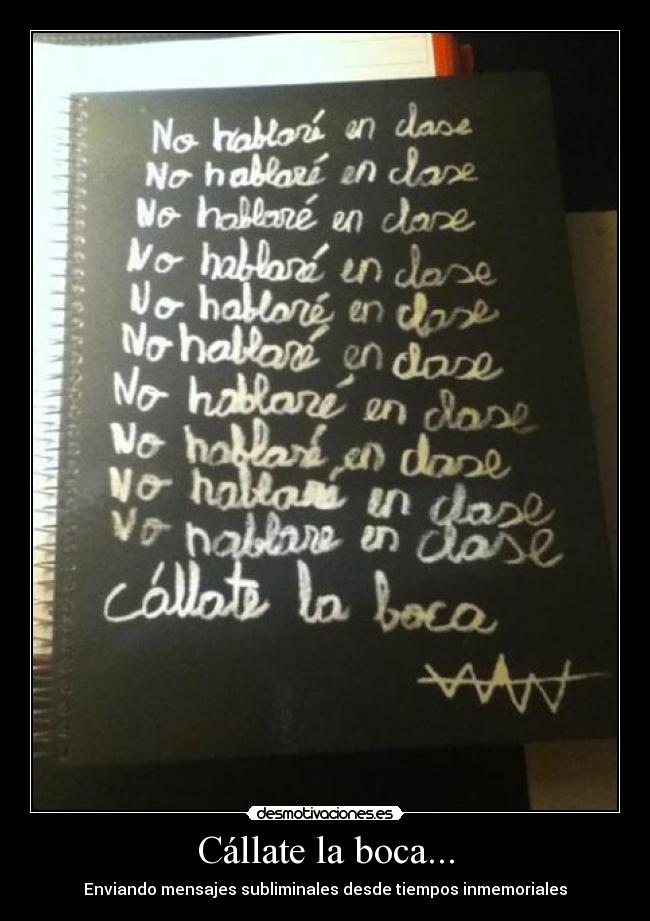 No hablaré en clase
No hablaré en clase
No hablaré en clase
No hablaré en clase
No hablaré en clase
No hablaré en clase
No hablaré en clase
No hablaré en clase
No hablaré en clase
No hablare en clase
cállate la boca
desmotivaciones.es
Cállate la boca...
Enviando mensajes subliminales desde tiempos inmemoriales